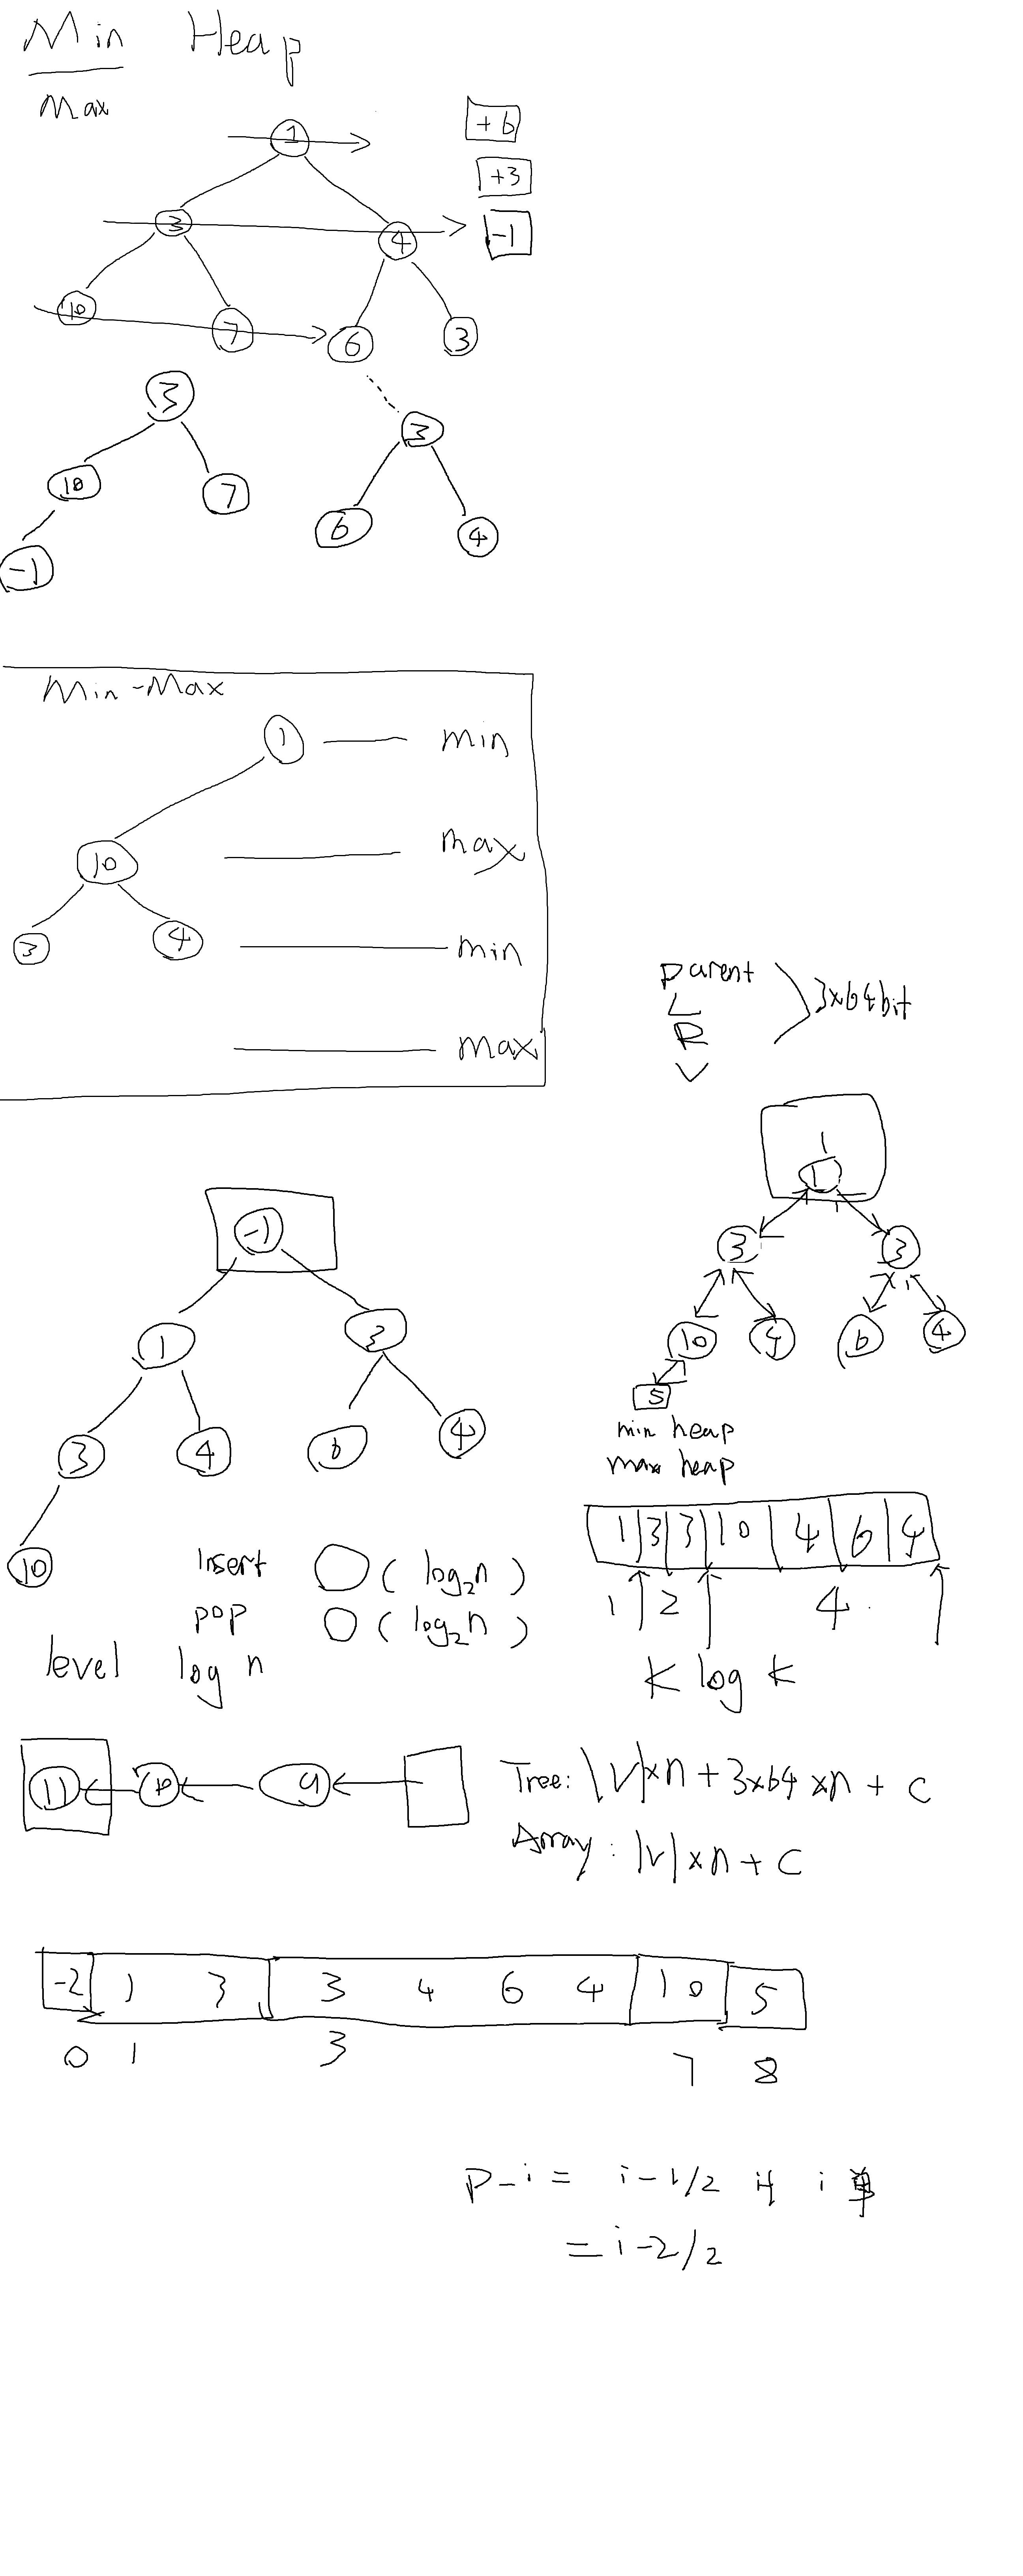 Min Heap
Max
1
+6
+3
-1
3 4
10 7 6 3
3
10 7
-1
3
6 4
Min-Max
1 min
10 max
3 4 min
max
parent
L
R
V
3x64bit
1
1
3 3
10 4 6 4
5
min heap
max heap
-1
1 3
3 4 6 4
10
1 3 3 10 4 6 4
1 2 4
Insert O(log₂n)
pop O(log₂n)
level log n
K log k
11 10 9
Tree: |V|xn + 3x64xn + C
Array: |V|xn + C
-2 1 3 3 4 6 4 10 5
0 1 3 7 8
P_i = i-1/2 if i 單
= i-2/2